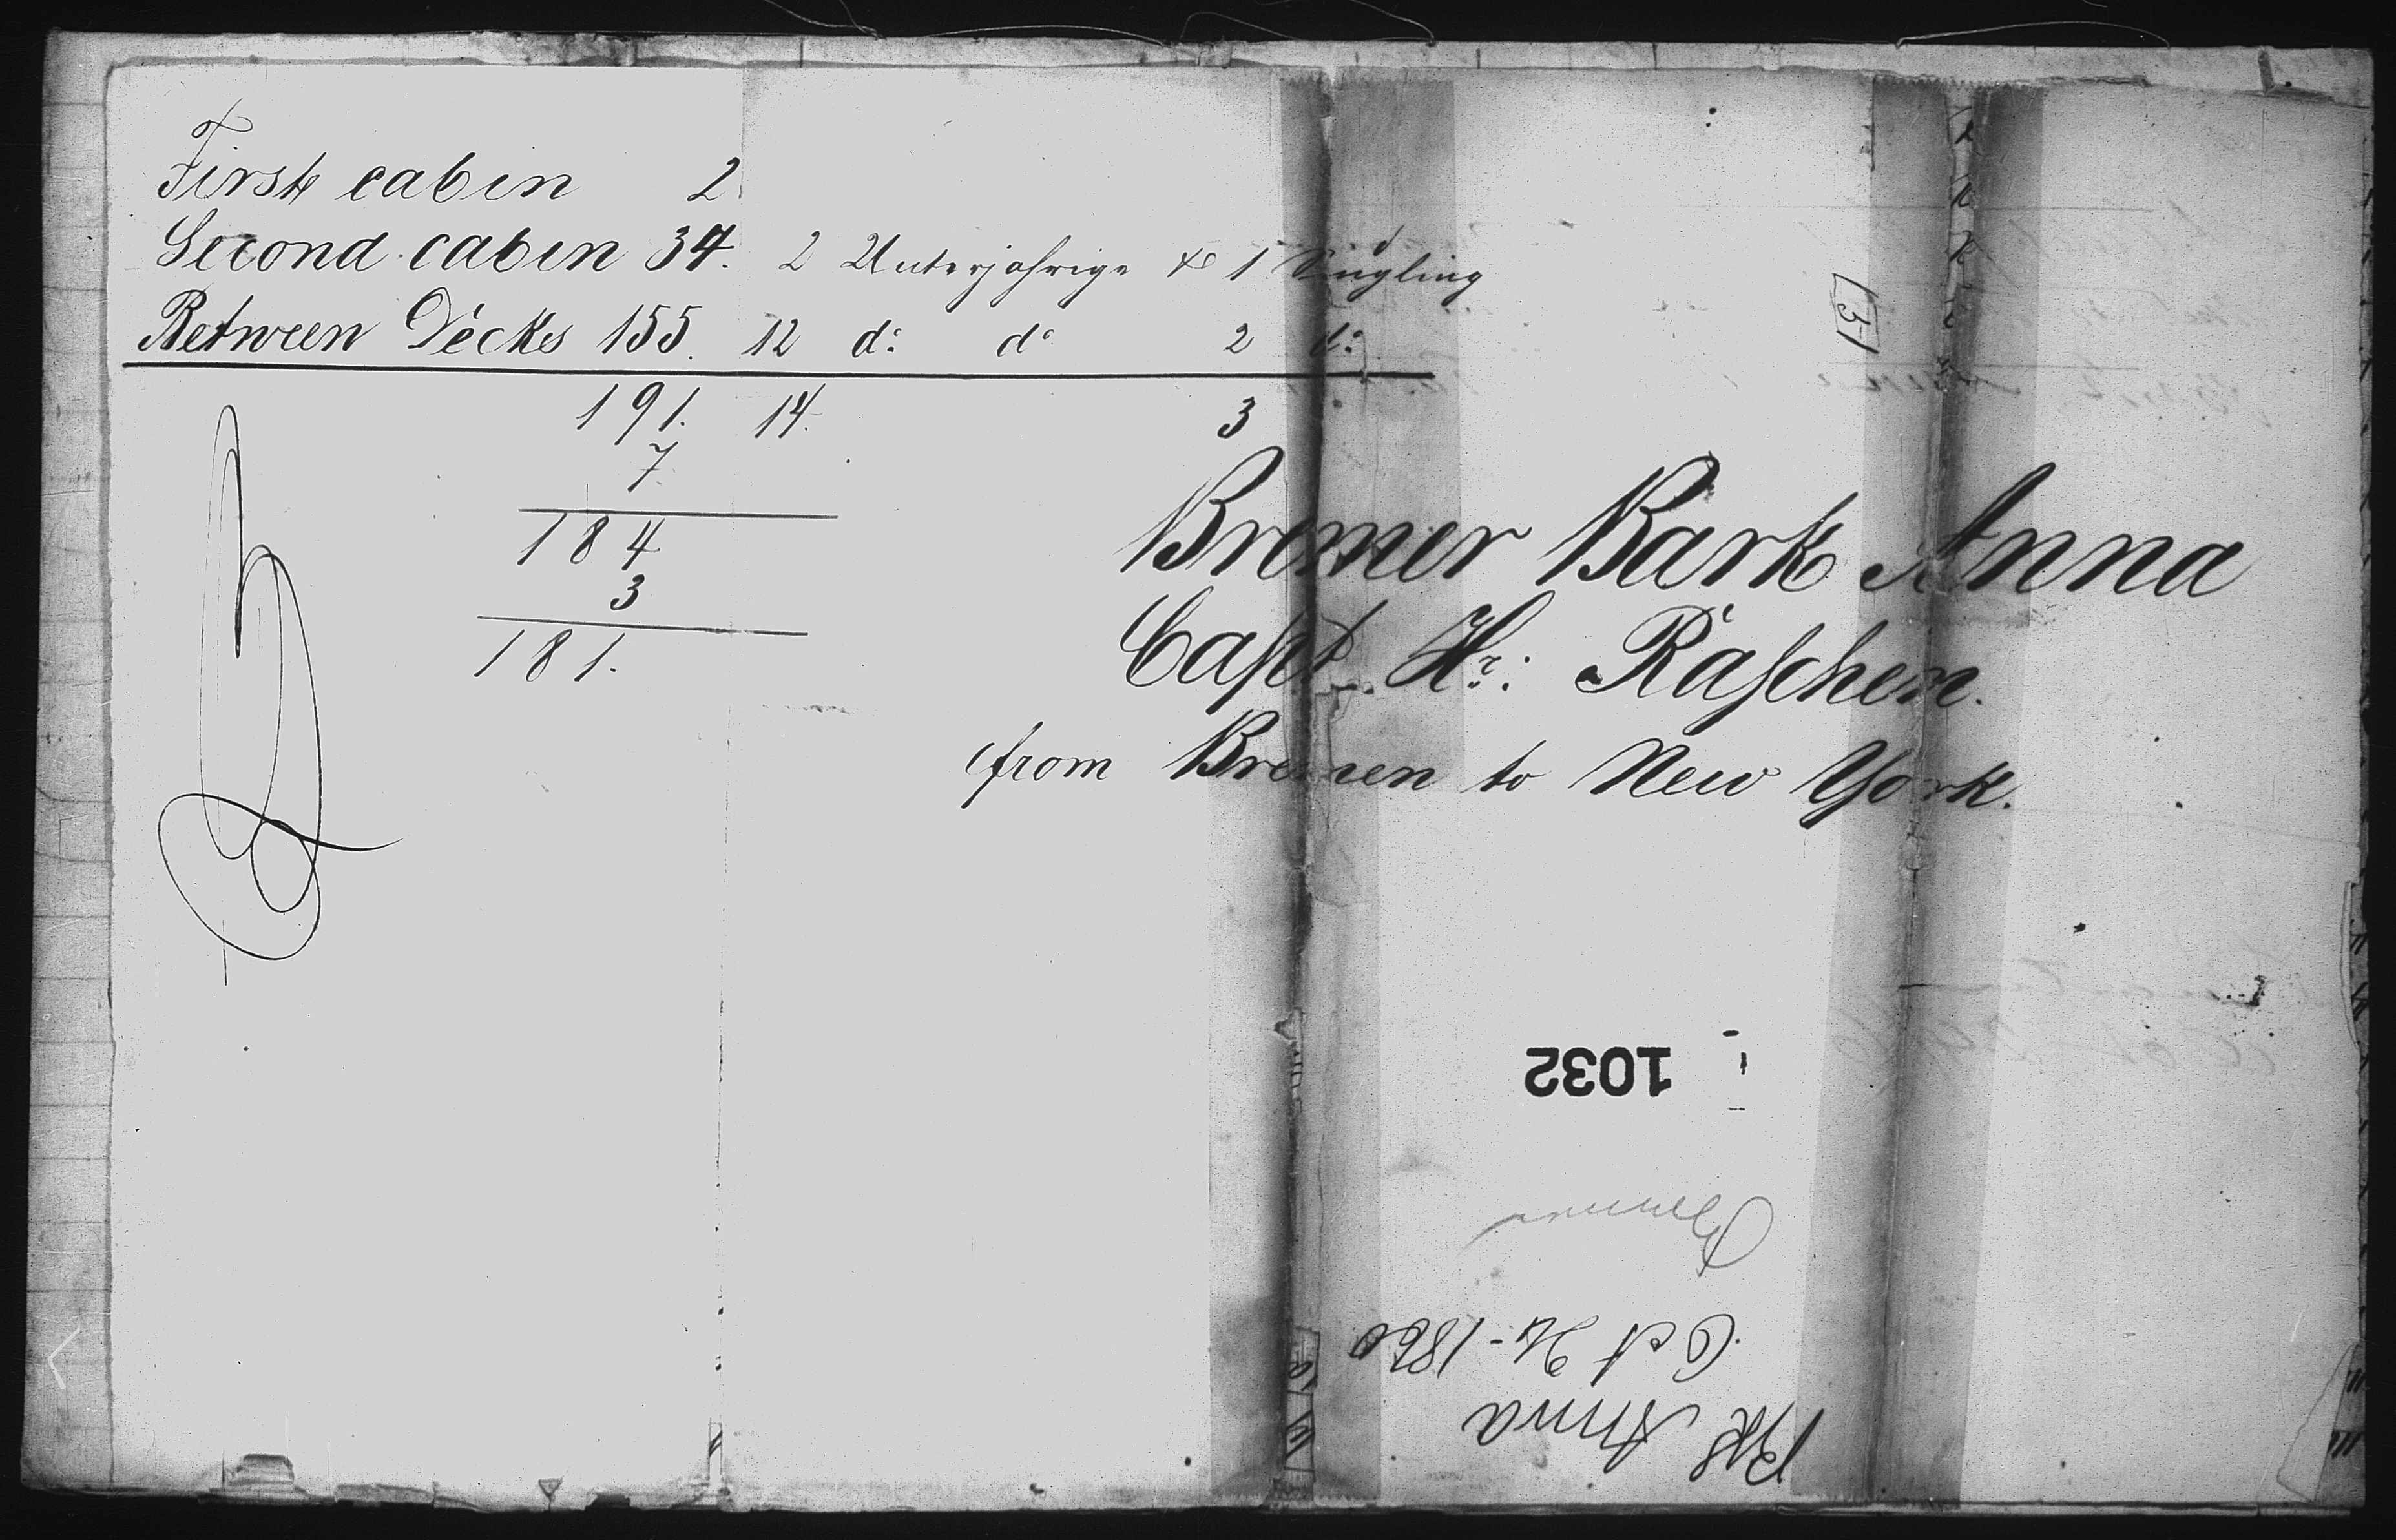 First cabin 2
Second cabin 34. 2 Unterjahrige & 1 Säugling
Between Decks 155. 12 do do 2 do
191. 14. 3
7
184
3
181.
Bremer Bark Anna
Capt. Hr: Raschen.
from Bremen to New York.
31
1032
Bremen
Oct 24-1860
Bk Anna